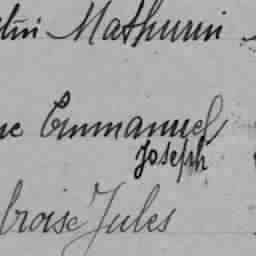 Mathurin
Emmanuel
Joseph
broise Jules